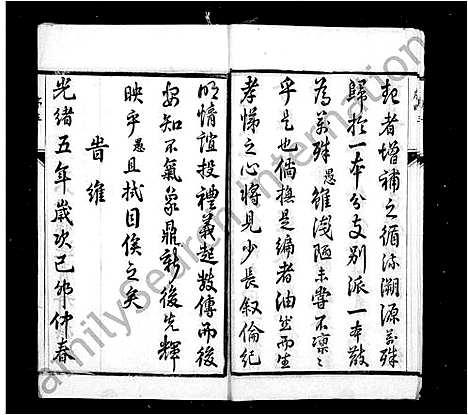 起者增補之循流溯源萬殊
歸於一本分支別派一本散
為萬殊愚雖淺陋未嘗不凜〻
乎是也倘撫是編者油然而生
孝悌之心將見少長叙倫紀
明情誼投禮義起數傳而後
安知不氣象鼎新後先輝
映乎愚且拭目俟之矣
旹維
光緒五年歲次己卯仲春
familysearch international